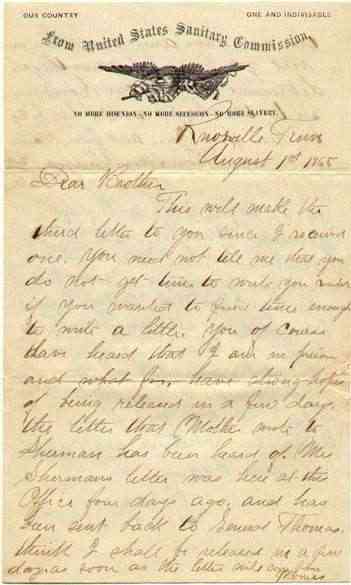 OUR COUNTRY ONE AND INDIVISABLE
From United States Sanitary Commission,
NO MORE DISUNION—NO MORE SECESSION—NO MORE SLAVERY.
Knoxville Tenn
August 1st 1865
Dear Brother
This will make the
third letter to you since I received
one. You must not tell me that you
do not get time to write you could
if you wanted to find time enough
to write a little. You of course
have heard that I am in prison
and what for, have strong hopes
of being released in a few days.
the letter that Mother wrote to
Sherman has been heard of. Mr
Shermans letter was here at this
Office four days ago, and has
been sent back to Thomas.
think I shall be released in a few
days as soon as the letter
Thomas